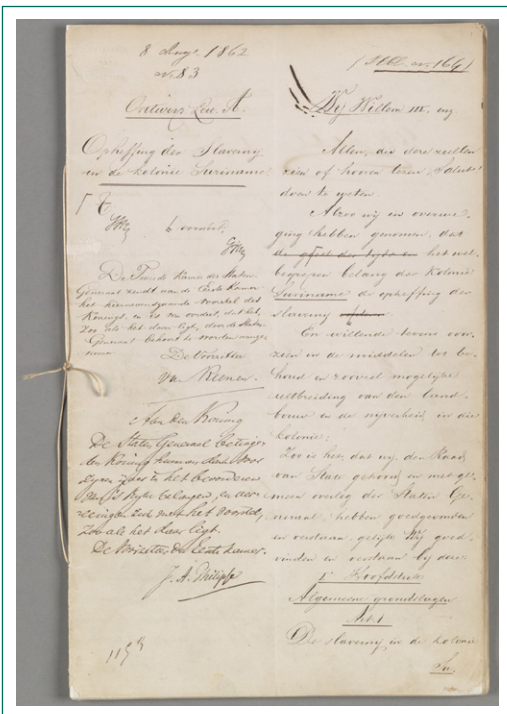 8 Aug. 1862
No. 83
Ontwerp Lett. A.
Opheffing der Slavernij
in de kolonie Suriname
De Tweede Kamer der Staten
Generaal zendt aan de Eerste Kamer
het hiernevensgaande voorstel des
Konings, en is van oordeel, dat het,
zoo als het daar ligt, door de Staten
Generaal behoort te worden aange-
nomen
De Voorzitter
van Reenen.
Aan den Koning
De Staten Generaal betuigen
den Koning hunnen dank voor
zijnen ijver in het bevorderen
van 's Rijks belangen, en ver-
eenigen zich met het voorstel,
zoo als het daar ligt.
De Voorzitter der Eerste Kamer.
J. A. Philipse
(Stbl. no. 164)
Wij Willem III, enz
Allen, die deze zullen
zien of hooren lezen, Salut!
doen te weten
Alzoo wij in overwe-
ging hebben genomen, dat
de geest des tijds en het wel-
begrepen belang der Kolonie
Suriname de opheffing der
slavernij
En willende tevens voor-
zien in de middelen tot be-
houd en zooveel mogelijke
uitbreiding van den land-
bouw en de nijverheid in die
kolonie;
Zoo is het, dat wij, den Raad
van State gehoord en met ge-
meen overleg der Staten Ge-
neraal, hebben goedgevonden
en verstaan, gelijk Wij goed-
vinden en verstaan bij deze:
1e Hoofdstuk
Algemeene grondslagen
Art. 1
De slavernij in de kolonie
Su-